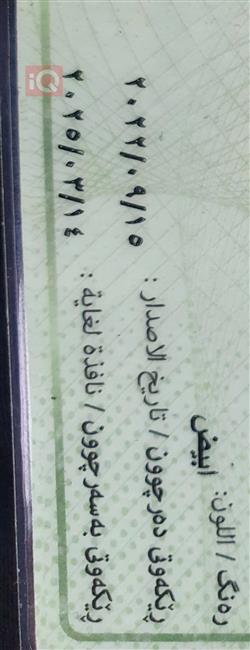 رەنگ / اللون: ابيض
ڕێکەوتی دەرچوون / تاريخ الاصدار: ٢٠٢٢/٠٩/١٥
ڕێکەوتی بەسەرچوون / نافذة لغاية: ٢٠٢٥/٠٣/١٤
iQ